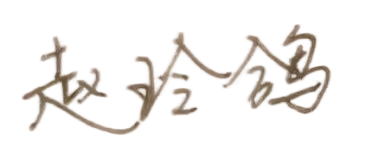 赵玲鸽